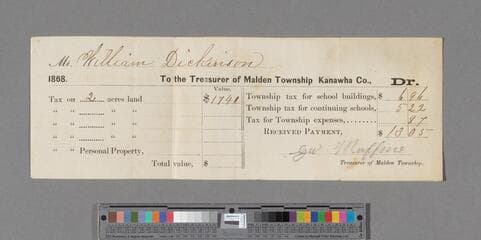 Mr. William Dickinson
1868. To the Treasurer of Malden Township Kanawha Co., Dr.
Value,
Tax on 2 acres land $1740
" " ............ " "
" " ............ " "
" " ............ " "
" " Personal Property,
Total value, $
Township tax for school buildings, $ 6 96
Township tax for continuing schools, 5 22
Tax for Township expenses, ........ 87
RECEIVED PAYMENT, $ 13 05
Treasurer of Malden Township.